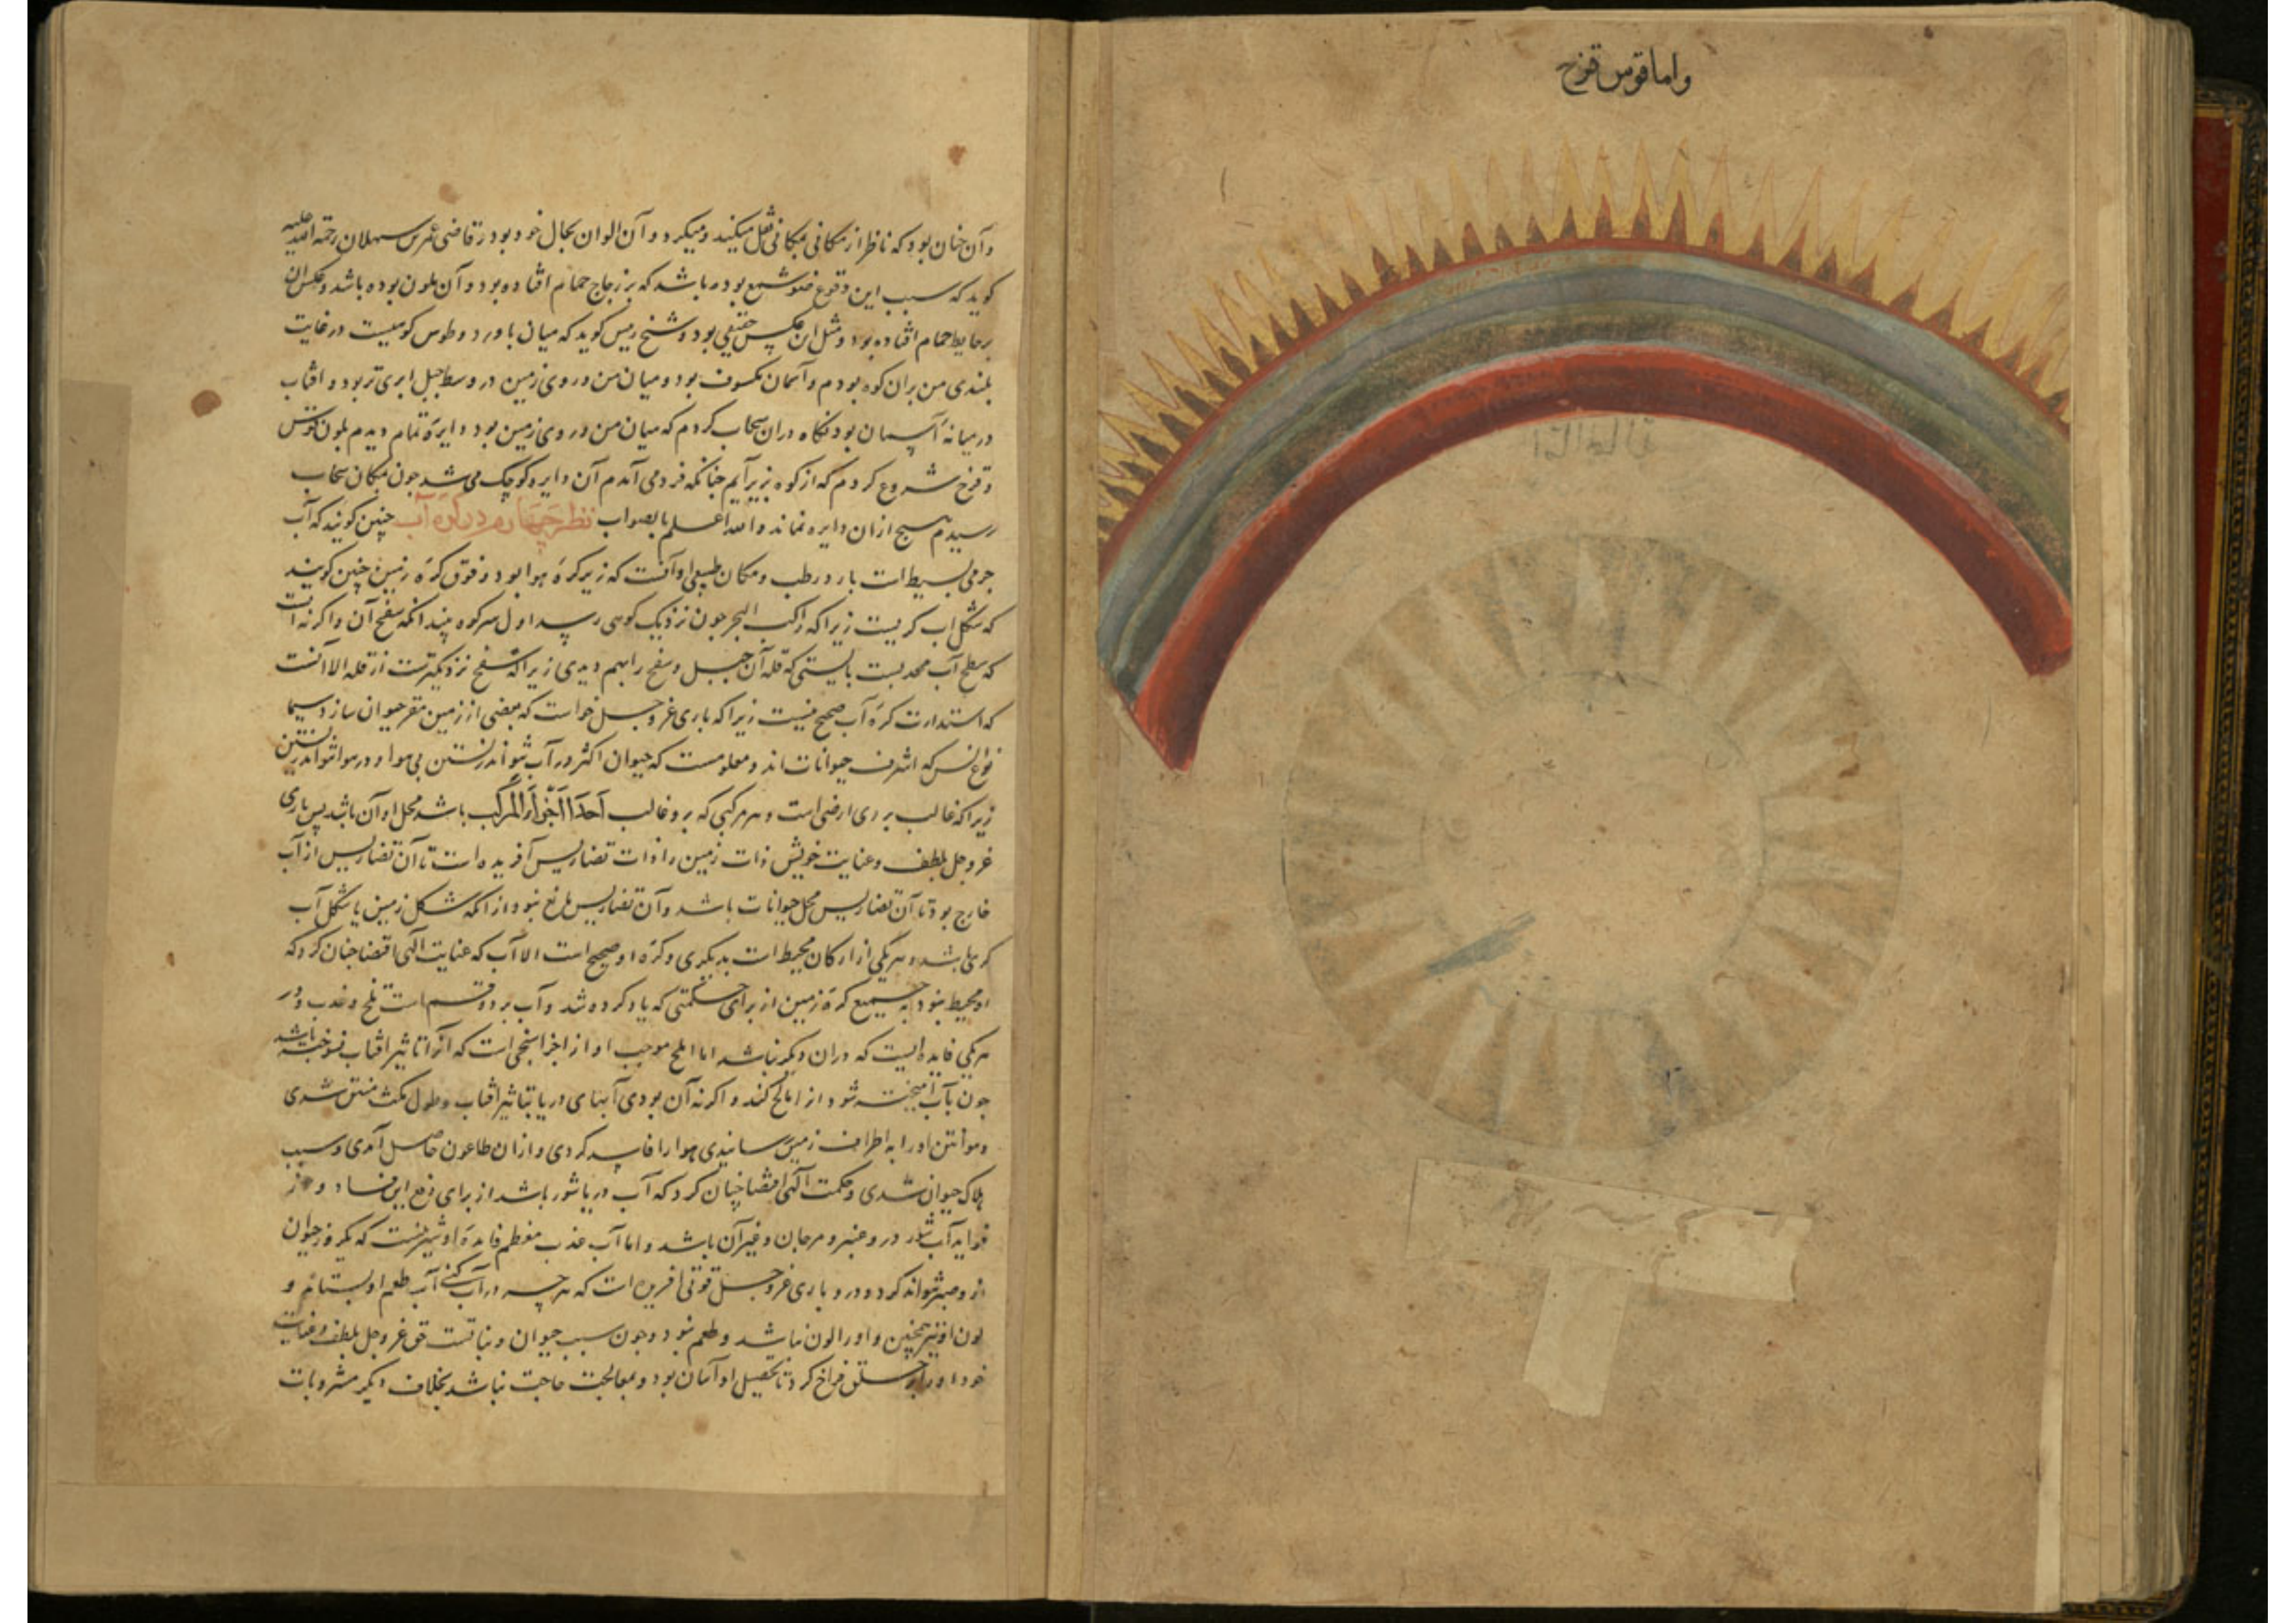 واما قوس قزح
وآن چنان بود که ناظر از مکانی بمکانی نقل میکند و میکرد و آن الوان بحال خود بود و قاضی عمر بن سهلان رحمة الله علیه
کوید که سبب این وقوع ضوء شمع بوده باشد که بر زجاج حمام افتاده بود و آن ملون بوده باشد و عکس آن
بر حایط حمام افتاده بود و مثل این عکس حقیقی بود و شیخ رییس کوید که میان باورد و طوس کوهیست در غایت
بلندی من بران کوه بودم و آسمان مکسوف بود و میان من و روی زمین در وسط جبل ابری تر بود و افتاب
در میانه آسمان بود نکاه دران سحاب کردم که میان من و روی زمین بود دایره تمام دیدم بلون قوس
و قزح شروع کردم که از کوه بزیر آیم چنانکه فرو می آمدم آن دایره کوچک می شد چون بمکان سحاب
رسیدم هیچ ازان دایره نماند والله اعلم بالصواب نظر چهارم در کره آب چنین کویند که آب
جرمی بسیط است بارد رطب و مکان طبیعی او آنست که زیر کره هوا بود و فوق کره زمین چنین کویند
که شکل اب کریست زیرا که راکب البحر چون نزدیک کوهی رسد اول سر کوه بیند انکه سفح آن و اکر نه انست
که سطح آب محدبست بایستی که قله آن جبل و سفح را بهم دیدی زیرا که سفح نزدیکترست از قله الا آنست
که استدارت کره آب صحیح نیست زیرا که باری عز و جل خواست که بعضی از زمین مقر حیوان سازد سیما
نوع انس که اشرف حیوانات اند و معلومست که حیوان اکثر در آب نتواند زیستن بی هوا و در هوا تواند زیستن
زیرا که غالب بر وی ارضی است و هر مرکبی که برو غالب احد اجزاء المرکب باشد محل او آن باشد پس باری
عز و جل بلطف و عنایت خویش ذات زمین را ذات تضاریس آفریده است تا آن تضاریس از آب
خارج بود تا آن تضاریس محل حیوانات باشد و آن تضاریس مانع نبود از انکه شکل زمین یا شکل آب
کری باشد و هر یکی از ارکان محیط است بدیکری و کره او صحیح است الا آب که عنایت الهی اقتضا چنان کرد که
او محیط نبود به جمیع کره زمین از برای حکمتی که یاد کرده شد و آب بر دو قسم است ملح و عذب و در
هر یکی فایده ایست که دران دیکر نباشد اما ملح موجب او از اجزا سبخی است که انرا تاثیر افتاب سوخته باشد
چون بآب آمیخته شود او را مالح کند و اکر نه آن بودی آبهای دریا بتاثیر افتاب و طول مکث منتن شدی
و هوا نتن او را به اطراف زمین رسانیدی هوا را فاسد کردی و ازان طاعون حاصل آمدی و سبب
هلاک حیوان شدی و حکمت الهی اقتضا چنان کرد که آب دریا شور باشد از برای دفع این فساد و از
فواید آب شور در و عنبر و مرجان و غیر آن باشد و اما آب عذب معظم فایده او شربست که یکروز حیوان
از و صبر نتواند کرد و درو باری عز و جل قوتی افریده است که هر چه در آب کنی آب طعم او بستاند و
لون او نیز همچنین و او را لون نباشد و طعم نبود و چون سبب حیوان و نباتست حق عز و جل بلطف و عنایت
خود او را فراخ کرد تا تحصیل او آسان بود و بمعالجت حاجت نباشد بخلاف دیکر مشروبات